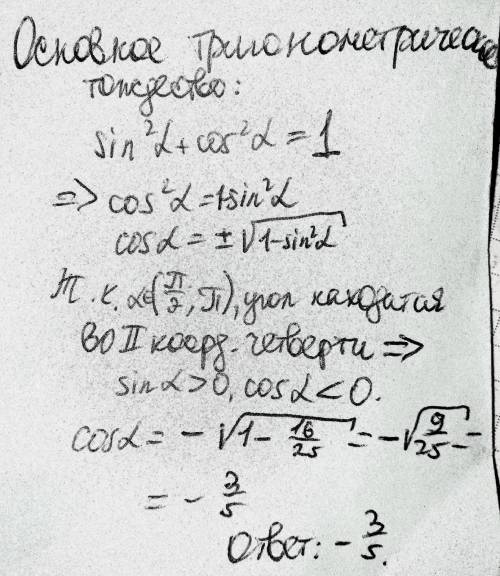 Основное тригонометрическое
тождество:
sin²α + cos²α = 1
=> cos²α = 1-sin²α
cosα = ±√(1-sin²α)
Т.к. α∈(π/2; π), угол находится
во II коорд. четверти =>
sinα > 0, cosα < 0.
cosα = -√(1 - 16/25) = -√(9/25) =
= - 3/5
Ответ: - 3/5.